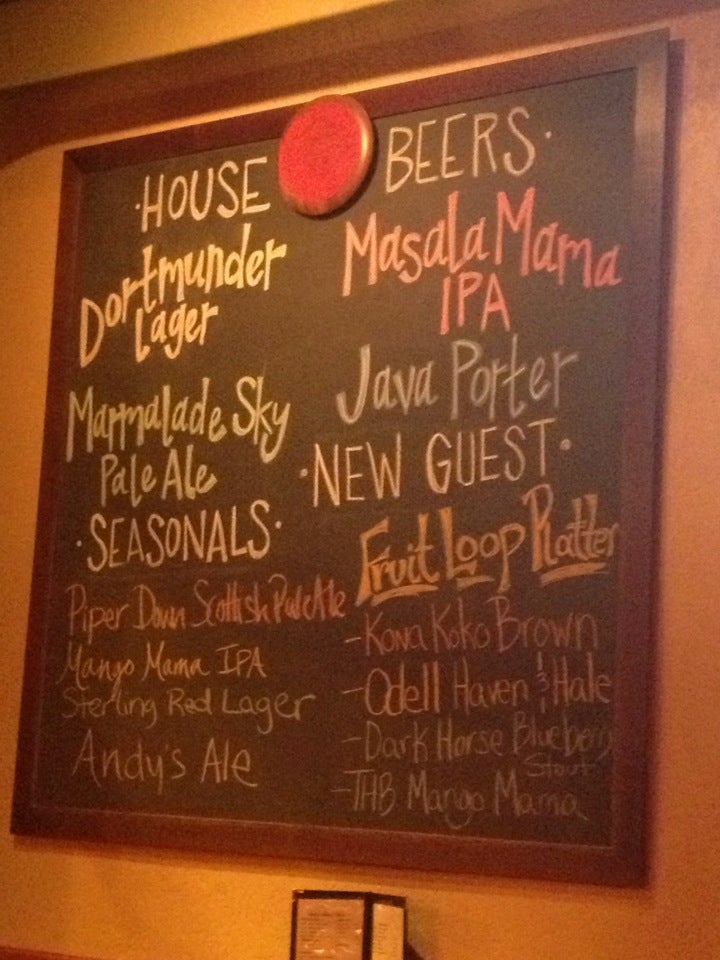 ·HOUSE BEERS·
Dortmunder
Lager
Masala Mama
IPA
Marmalade Sky
Pale Ale
Java Porter
·SEASONALS·
Piper Down Scottish Pale Ale
Mango Mama IPA
Sterling Red Lager
Andy's Ale
·NEW GUEST·
Fruit Loop Platter
-Kona Koko Brown
-Odell Haven & Hale
-Dark Horse Blueberry
Stout
-THB Mango Mama